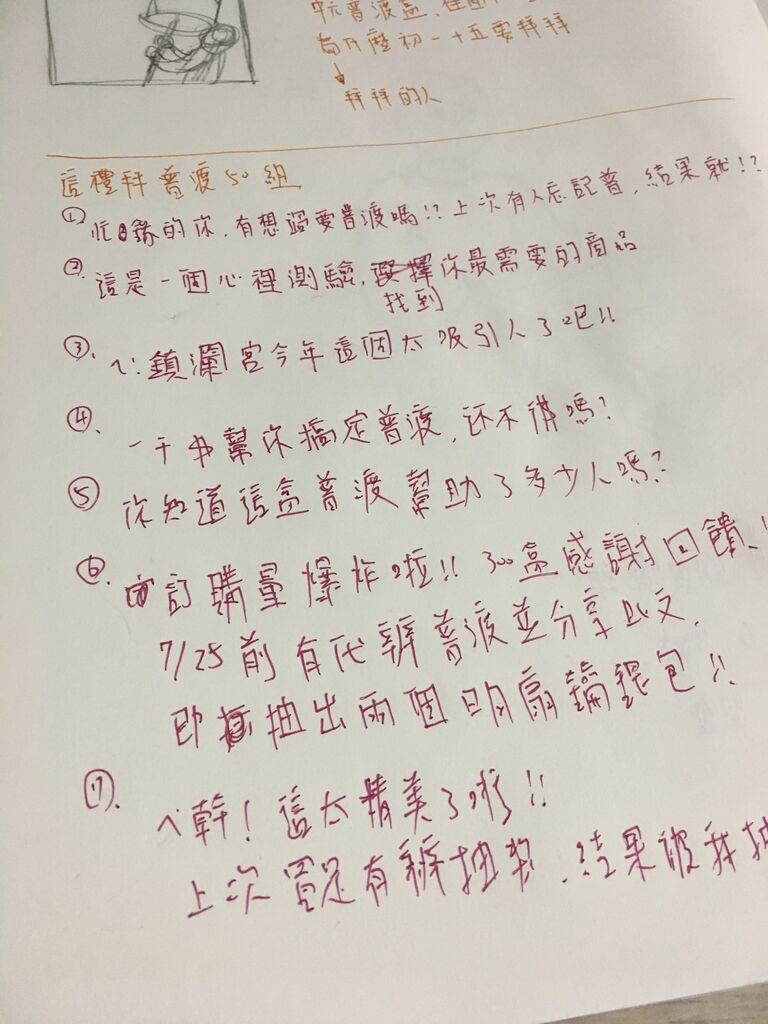 中元普渡盒
為什麼初一十五要拜拜
↓
拜拜的人
這禮拜普渡50組
① 忙碌的你,有想過要普渡嗎!?上次有人忘記普,結果就!?
② 這是一個心裡測驗,找到你最需要的商品
③. ㄟ:鎮瀾宮今年這個太吸引人了吧!!
④. 一千內幫你搞定普渡,还不備嗎?
⑤ 你知道這盒普渡幫助了多少人嗎?
⑥. 訂購量爆炸啦!!300盒感謝回饋!!
7/25前有代辦普渡並分享此文,
即抽出兩個明扇鑰匙包!!
⑦. ㄟ幹!這太精美了啦!!
上次買還有辦抽獎,結果被我抽